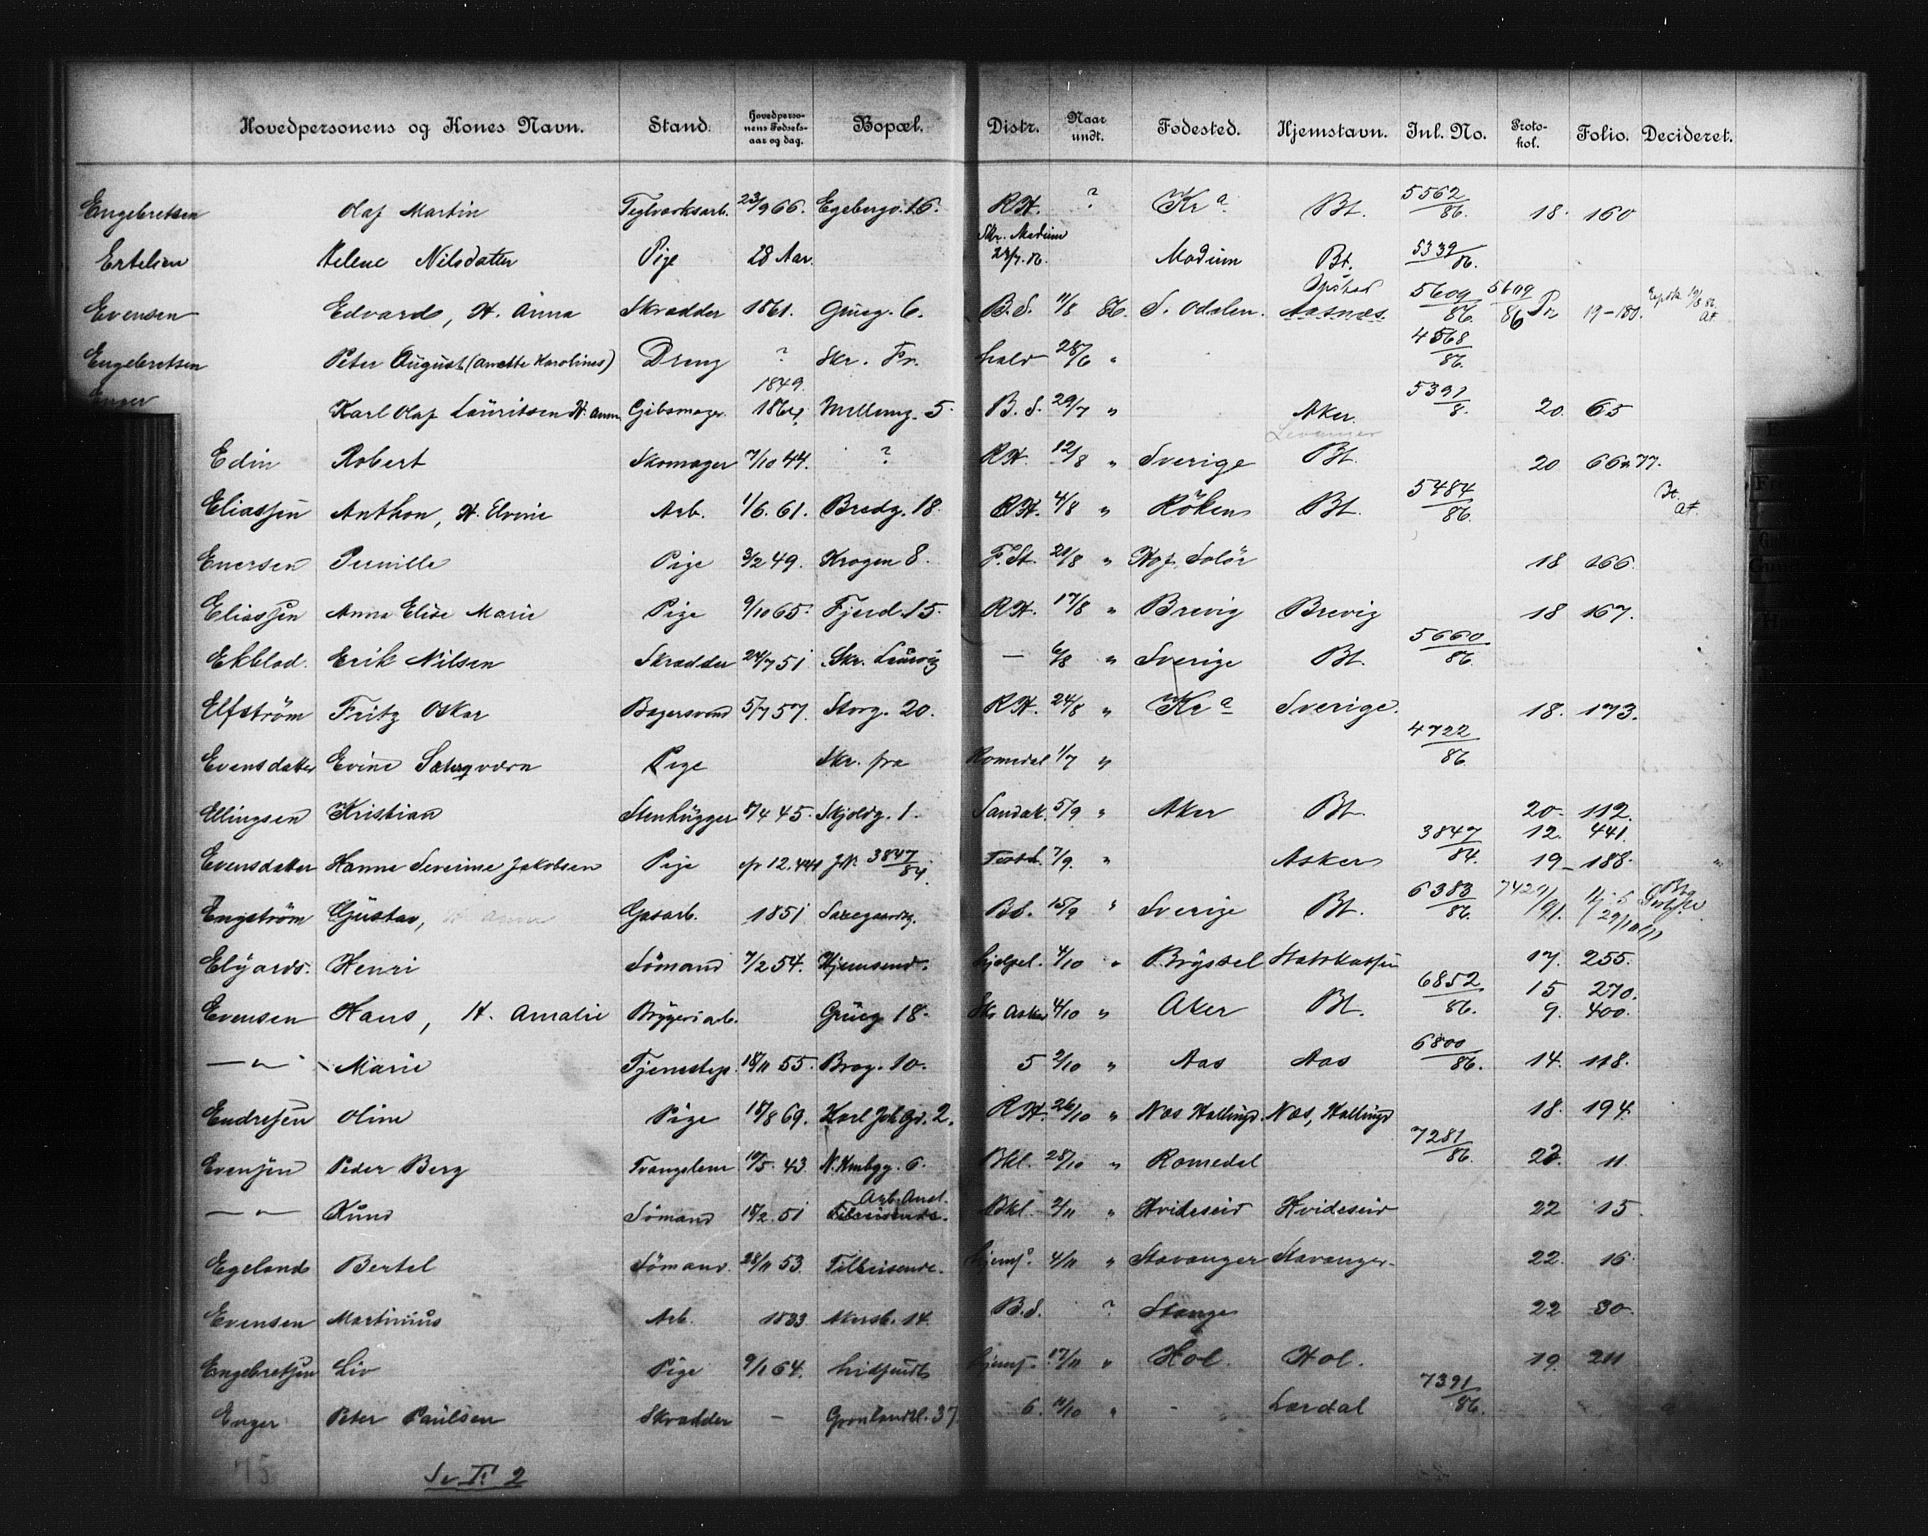 Hovedpersonens og Kones Navn. Stand. Hovedpersonens Fødselsaar og dag. Bopæl. Distr. Naar undt. Fødested. Hjemstavn. Inl. No. Protokol. Folio. Decideret.
Engebretsen Olaf Martin Teglværksarb. 23/9 66. Egebergv. 16. R.H. ? Kr a. Bt. 5562/86. 18. 160
Ertelsen Helene Nilsdatter Pige 28 Aar. Skr. Modum Modum Bt. 5339/86.
Evensen Edvard, H. Anna Skrædder 1861. Grüeg. 6. B.S. 11/8 86. S. Odalen. Aasnæs 5609/86. 5609/86 19-180.
Engebretsen Peter August (Anette Karolines) Dreng ? Skr. Fr. 28/6 " 4568/86.
Enger Karl Olaf Lauritsen H. Anna Gjibsmager 1849. 1864. Mellemg. 5. B.S. 29/7 " Aker. 5391/8. 20. 65
Edin Robert Skomager 7/10 44. ? R.H. 12/8 " Sverige Levanger Bt. 20 66 77.
Eliassen Anthon, H. Elvine Arb. 1/6. 61. Bredg. 18. R.H. 4/8 " Röken Bt. 5484/86. Bt. at.
Enersen Pernille Pige 3/2 49. Krogen 8. F. St. 21/8 " Hof. Solör 18 166.
Eliassen Anna Elise Marie Pige 9/10 65. Fjerd. 15. R.H. 17/8 " Brevig Brevig 18 167.
Ekblad. Erik Nilsen Skrædder 24/7 51 Skr. Laurvig — 6/8 " Sverige Bt. 5660/86.
Elfström Fritz Oskar Bagersvend 5/7 57. Storg. 20. R.H. 24/8 " Kr a Sverige. 18. 173.
Evensdatter Evine Pige Skr. fra Romedal 1/7 " 4722/86.
Ellingsen Kristian Stenhugger 8/4 45. Skjoldg. 1. Sandak. 5/9 " Aker Bt. 20. 112.
Evensdatter Hanne Severine Jakobsen Pige 12.44 J.N. 3847/84. 7/9. " Asker 3847/84. 12. 441. 19-188.
Engström Gustav, H. Anna Gasarb. 1851 B.S. 15/9 " Sverige Bt. 6383/86. 742
Elyards. Henri Sömand 7/2 54. Hjemsend. Hjelpel. 4/10 " Brüssel Statskassen 17. 255.
Evensen Hans, H. Amalie Bryggeriarb. Grüeg 18. Skr Asker 4/10 " Aker Bt. 6852/86. 15 270. 9. 400.
— " — Marie Tjenestep. 18/11 55. Brog. 10. 5 2/10 " Aas Aas 6800/86. 14. 118.
Endresen Oline Pige 15/8 69. Karl Joh Gd. 2. R.H. 26/10 " Næs Hallingd. Næs, Hallingd 18. 194.
Evensen Peder Berg Tvangslem 19/5. 43 6. Bkl. 28/10 " Romedal 7281/86. 22. 11.
— " — Knud Sömand 18/2. 51 Arb. Anst. Tilreisende. Bkl. 2/11 " Hvideseid Hvideseid 22 15.
Egeland Bertel Sömand. 28/11 53. Tilreisende. Hjemf. 4/11 " Stavanger Stavanger. 22. 16.
Evensen Martinius Arb. 1833 Akersb. 14. B.S. ? Stange 22 30.
Engebretsen Liv Pige 9/11 64. Hidsendt Hjemf. 17/11 " Hol. Hol. 19. 211
Enger Peter Paulsen Skrædder — Grönlandsl. 37 6. 11/10 " - " Lærdal 7391/86.
75
Se II 2